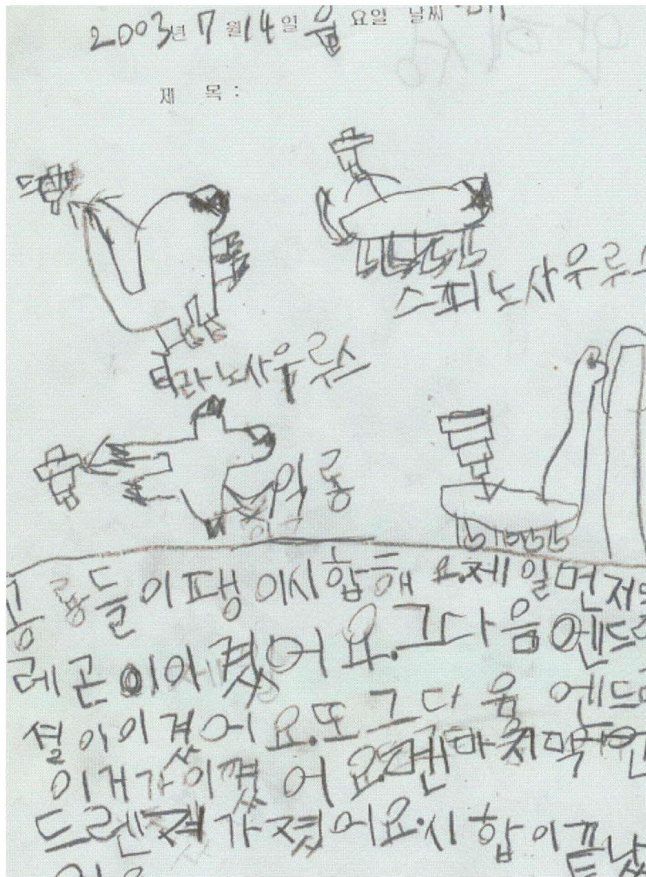 2003년 7월 14일 월요일 날씨
제 목 :
스피노사우루스
티라노사우루스
익룡
공룡들이팽이시합해요.제일먼저
레곤이이겼어요.그다음엔드
셜이이겼어요.또그다음엔드
이거가이꼈어요.맨마지막에
드렌져가졌어요.시합이끝났